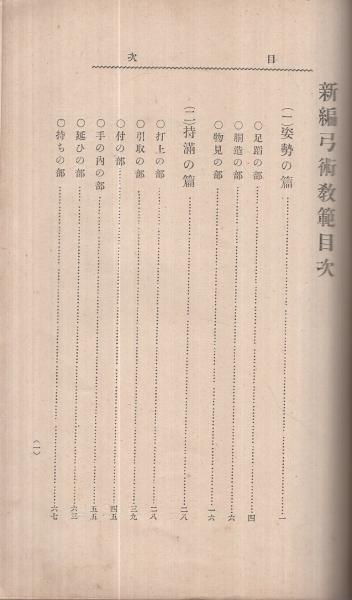 目次
新編弓術教範目次
(一)姿勢の篇……一
〇足蹈の部……四
〇胴造の部……六
〇物見の部……一六
(二)持滿の篇……二八
〇打上の部……二八
〇引取の部……三九
〇付の部……四五
〇手の内の部……五五
〇延びの部……六三
〇持ちの部……六七
(一)